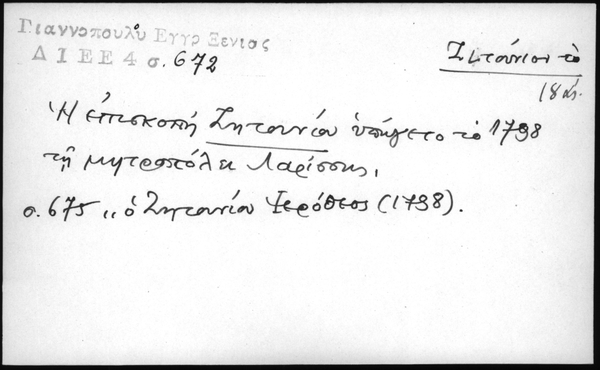 Γιαννοπούλου Εγγρ Ξενιας
Δ Ι Ε Ε 4 σ. 672
Ζητούνιον τὸ
18 αἰ.
Ἡ ἐπισκοπή Ζητουνίου ὑπήγετο τὸ 1798
τῇ μητροπόλει Λαρίσσης.
σ. 675 „ ὁ Ζητουνίου Ἱερόθεος (1798).